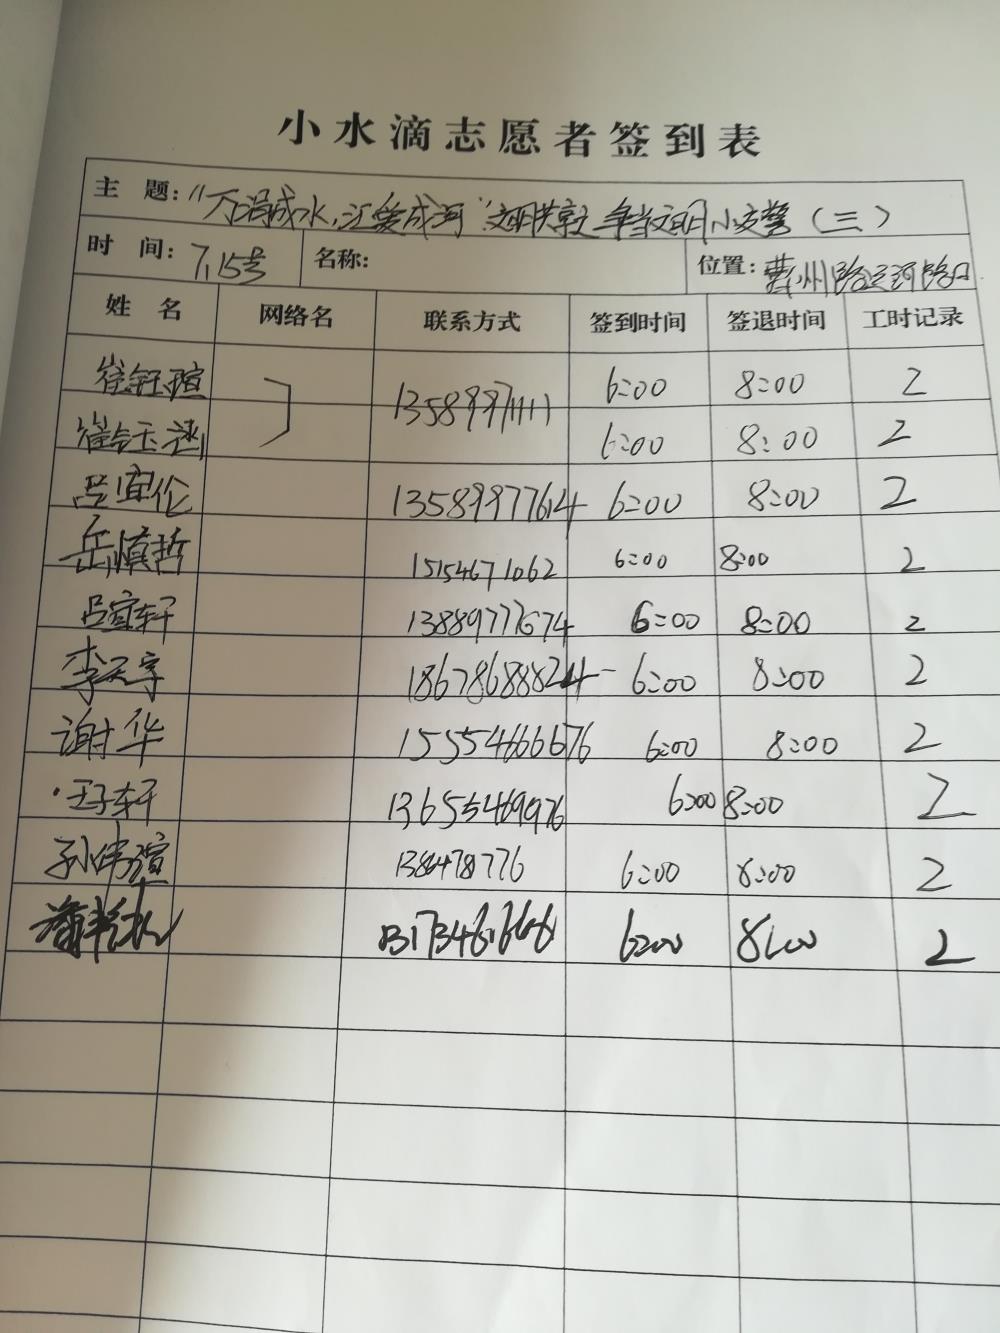 小水滴志愿者签到表
主 题："万涓成水,汇爱成河"文明共享之争当文明小交警（三）
时 间：7.15号 名称： 位置：路运河路口
姓 名 网络名 联系方式 签到时间 签退时间 工时记录
崔钰瑄 13589971111 6:00 8:00 2
崔钰涵 6:00 8:00 2
吕宜伦 13589977614 6:00 8:00 2
岳慎哲 15154671062 6:00 8:00 2
吕宜轩 13889777674 6:00 8:00 2
李天宇 18678688824 6:00 8:00 2
谢华 15554666676 6:00 8:00 2
王子轩 13655469976 6:00 8:00 2
孙伟瑄 1386478776 6:00 8:00 2
6:00 8:00 2